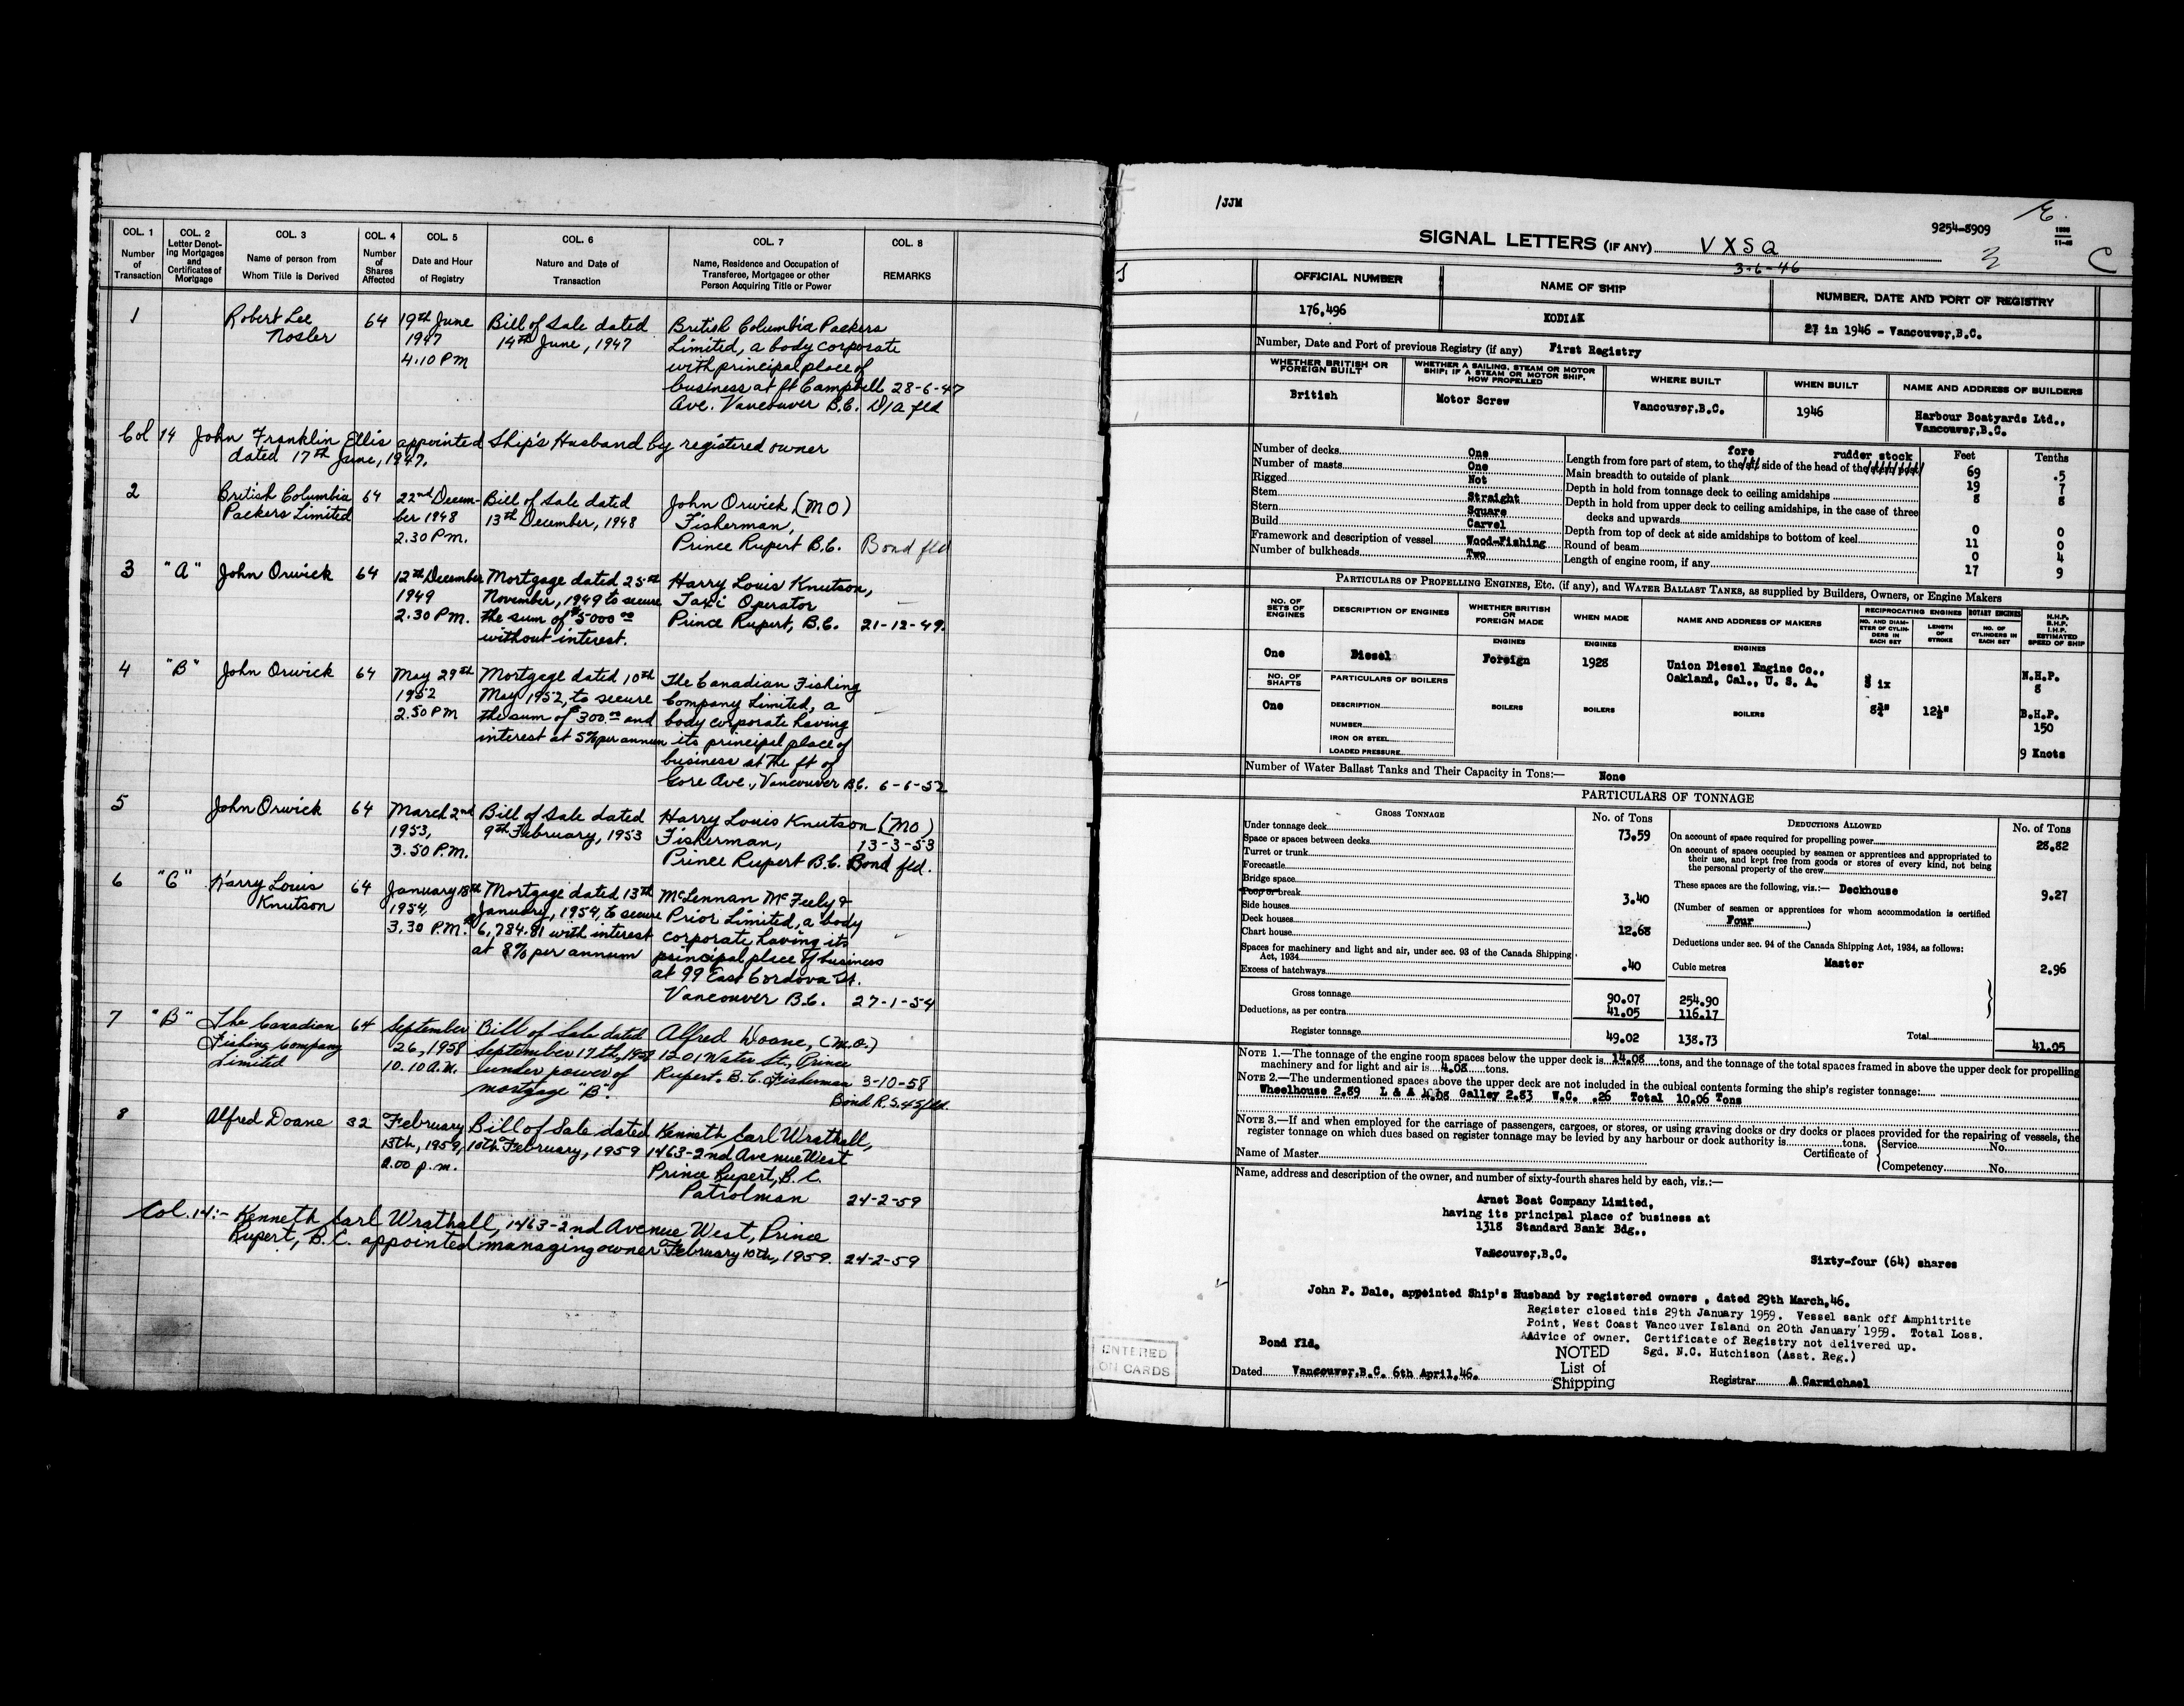 COL. 1 COL. 2 COL. 3 COL. 4 COL. 5 COL. 6 COL. 7 COL. 8
Number of Transaction
Letter Denoting Mortgages and Certificates of Mortgage
Name of person from Whom Title is Derived
Number of Shares Affected
Date and Hour of Registry
Nature and Date of Transaction
Name, Residence and Occupation of Transferee, Mortgagee or other Person Acquiring Title or Power
REMARKS
1 Robert Lee 64 19th June Bill of Sale dated British Columbia Packers
Nosler 1947 14th June, 1947 Limited, a body corporate
4.10 PM with principal place of
business at ft Campbell 28-6-47
Ave. Vancouver B.C. D/a fld
Col 14 John Franklin Ellis appointed Ship's Husband by registered owner
dated 17th June, 1947.
2 British Columbia 64 22nd Decem- Bill of Sale dated John Orwick (MO)
Packers Limited ber 1948 13th December, 1948 Fisherman,
2.30 PM. Prince Rupert B.C. Bond fld
3 "A" John Orwick 64 12th December Mortgage dated 25th Harry Louis Knutson,
1949 November, 1949 to secure Taxi Operator
2.30 PM. the sum of $5000.00 Prince Rupert, B.C. 21-12-49.
without interest.
4 "B" John Orwick 64 May 29th Mortgage dated 10th The Canadian Fishing
1952 May 1952, to secure Company Limited, a
2.50 PM the sum of 300.00 and body corporate having
interest at 5% per annum its principal place of
business at the ft of
Gore Ave., Vancouver B.C. 6-6-52
5 John Orwick 64 March 2nd Bill of Sale dated Harry Louis Knutson (MO)
1953, 9th February, 1953 Fisherman, 13-3-53
3.50 P.M. Prince Rupert B.C. Bond fld.
6 "C" Harry Louis 64 January 18th Mortgage dated 13th McLennan McFeely &
Knutson 1954, January, 1954, to secure Prior Limited, a body
3.30 P.M. $6,784.81 with interest corporate having its
at 8% per annum principal place of business
at 99 East Cordova St.
Vancouver B.C. 27-1-54
7 "B" The Canadian 64 September Bill of Sale dated Alfred Doane, (M.O.)
Fishing Company 26, 1958 September 17th, 1958 1201 Water St, Prince
Limited 10.10 A.M. under power of Rupert. B.C. Fisherman 3-10-58
mortgage "B". Bond R.S.45 fld.
8 Alfred Doane 32 February Bill of Sale dated Kenneth Carl Wrathall,
13th, 1959, 10th February, 1959 1463-2nd Avenue West
2.00 p.m. Prince Rupert, B.C.
Patrolman 24-2-59
Col. 14:- Kenneth Carl Wrathall, 1463-2nd Avenue West, Prince
Rupert, B.C. appointed managing owner February 10th, 1959. 24-2-59
/JJM
9254-8909
SIGNAL LETTERS (IF ANY) VXSQ
3-6-46
OFFICIAL NUMBER NAME OF SHIP NUMBER, DATE AND PORT OF REGISTRY
176,496 KODIAK 27 in 1946 - Vancouver, B.C.
Number, Date and Port of previous Registry (if any) First Registry
WHETHER BRITISH OR FOREIGN BUILT
WHETHER A SAILING, STEAM OR MOTOR SHIP; IF A STEAM OR MOTOR SHIP, HOW PROPELLED
WHERE BUILT WHEN BUILT NAME AND ADDRESS OF BUILDERS
British Motor Screw Vancouver, B.C. 1946 Harbour Boatyards Ltd.,
Vancouver, B.C.
Number of decks One
Number of masts One
Rigged Not
Stem Straight
Stern Square
Build Carvel
Framework and description of vessel Wood-Fishing
Number of bulkheads Two
Feet Tenths
fore rudder stock
Length from fore part of stem, to the side of the head of the 69 .5
Main breadth to outside of plank 19 7
Depth in hold from tonnage deck to ceiling amidships 8 8
Depth in hold from upper deck to ceiling amidships, in the case of three
decks and upwards 0 0
Depth from top of deck at side amidships to bottom of keel 11 0
Round of beam 0 4
Length of engine room, if any 17 9
PARTICULARS OF PROPELLING ENGINES, ETC. (if any), and WATER BALLAST TANKS, as supplied by Builders, Owners, or Engine Makers
NO. OF SETS OF ENGINES
DESCRIPTION OF ENGINES
WHETHER BRITISH OR FOREIGN MADE
WHEN MADE
NAME AND ADDRESS OF MAKERS
RECIPROCATING ENGINES ROTARY ENGINES
NO. AND DIAMETER OF CYLINDERS IN EACH SET
LENGTH OF STROKE
NO. OF CYLINDERS IN EACH SET
N.H.P. B.H.P. I.H.P. ESTIMATED SPEED OF SHIP
ENGINES ENGINES ENGINES
One Diesel Foreign 1928 Union Diesel Engine Co.,
Oakland, Cal., U. S. A.
Six
N.H.P.
8
NO. OF SHAFTS PARTICULARS OF BOILERS
One DESCRIPTION BOILERS BOILERS BOILERS 8¾" 12½" B.H.P.
NUMBER 150
IRON OR STEEL
LOADED PRESSURE 9 Knots
Number of Water Ballast Tanks and Their Capacity in Tons:— None
PARTICULARS OF TONNAGE
GROSS TONNAGE No. of Tons DEDUCTIONS ALLOWED No. of Tons
Under tonnage deck 73.59
Space or spaces between decks
Turret or trunk
Forecastle
Bridge space
Poop or break 3.40
Side houses
Deck houses 12.68
Chart house
Spaces for machinery and light and air, under sec. 93 of the Canada Shipping
Act, 1934
Excess of hatchways .40
Gross tonnage 90.07 254.90
Deductions, as per contra 41.05 116.17
Register tonnage 49.02 138.73
On account of space required for propelling power 28.82
On account of spaces occupied by seamen or apprentices and appropriated to
their use, and kept free from goods or stores of every kind, not being
the personal property of the crew
These spaces are the following, viz.:— Deckhouse 9.27
(Number of seamen or apprentices for whom accommodation is certified
Four )
Deductions under sec. 94 of the Canada Shipping Act, 1934, as follows:
Cubic metres Master 2.96
Total 41.05
NOTE 1.—The tonnage of the engine room spaces below the upper deck is 14.08 tons, and the tonnage of the total spaces framed in above the upper deck for propelling
machinery and for light and air is 4.08 tons.
NOTE 2.—The undermentioned spaces above the upper deck are not included in the cubical contents forming the ship's register tonnage:
Wheelhouse 2.89 L & A 4.08 Galley 2.83 W.C. .26 Total 10.06 Tons
NOTE 3.—If and when employed for the carriage of passengers, cargoes, or stores, or using graving docks or dry docks or places provided for the repairing of vessels, the
register tonnage on which dues based on register tonnage may be levied by any harbour or dock authority is tons.
Name of Master Certificate of Service No.
Competency No.
Name, address and description of the owner, and number of sixty-fourth shares held by each, viz.:—
Arnet Boat Company Limited,
having its principal place of business at
1318 Standard Bank Bdg.,
Vancouver, B.C. Sixty-four (64) shares
John P. Dale, appointed Ship's Husband by registered owners , dated 29th March, 46.
Register closed this 29th January 1959. Vessel sank off Amphitrite
Point, West Coast Vancouver Island on 20th January 1959. Total Loss.
Advice of owner. Certificate of Registry not delivered up.
Bond fld. NOTED Sgd. N.C. Hutchison (Asst. Reg.)
List of
Shipping
ENTERED
ON CARDS
Dated Vancouver, B.C. 6th April, 46. Registrar A Carmichael